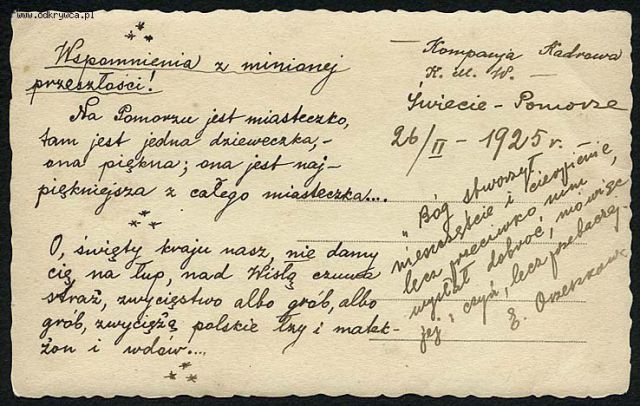 www.odkrywca.pl
Wspomnienia z minionej
przeszłości!
Na Pomorzu jest miasteczko,
tam jest jedna dzieweczka,-
ona piękna; ona jest naj-
piękniejsza z całego miasteczka....
O, święty kraju nasz, nie damy
cię na łup, nad Wisłą czuwa
straż, zwycięstwo albo grób, albo
grób, zwyciężą polskie łzy i matek-
żon i wdów....
— Kompanja Kadrowa
K. M. W. —
Świecie - Pomorze
26/II - 1925 r.
"Bóg stworzył
nieszczęście i cierpienie,
lecz przeciwko nim
wysłał dobroć, mówiąc
jej: czyń, lecz przebaczaj.
E. Orzeszkowa